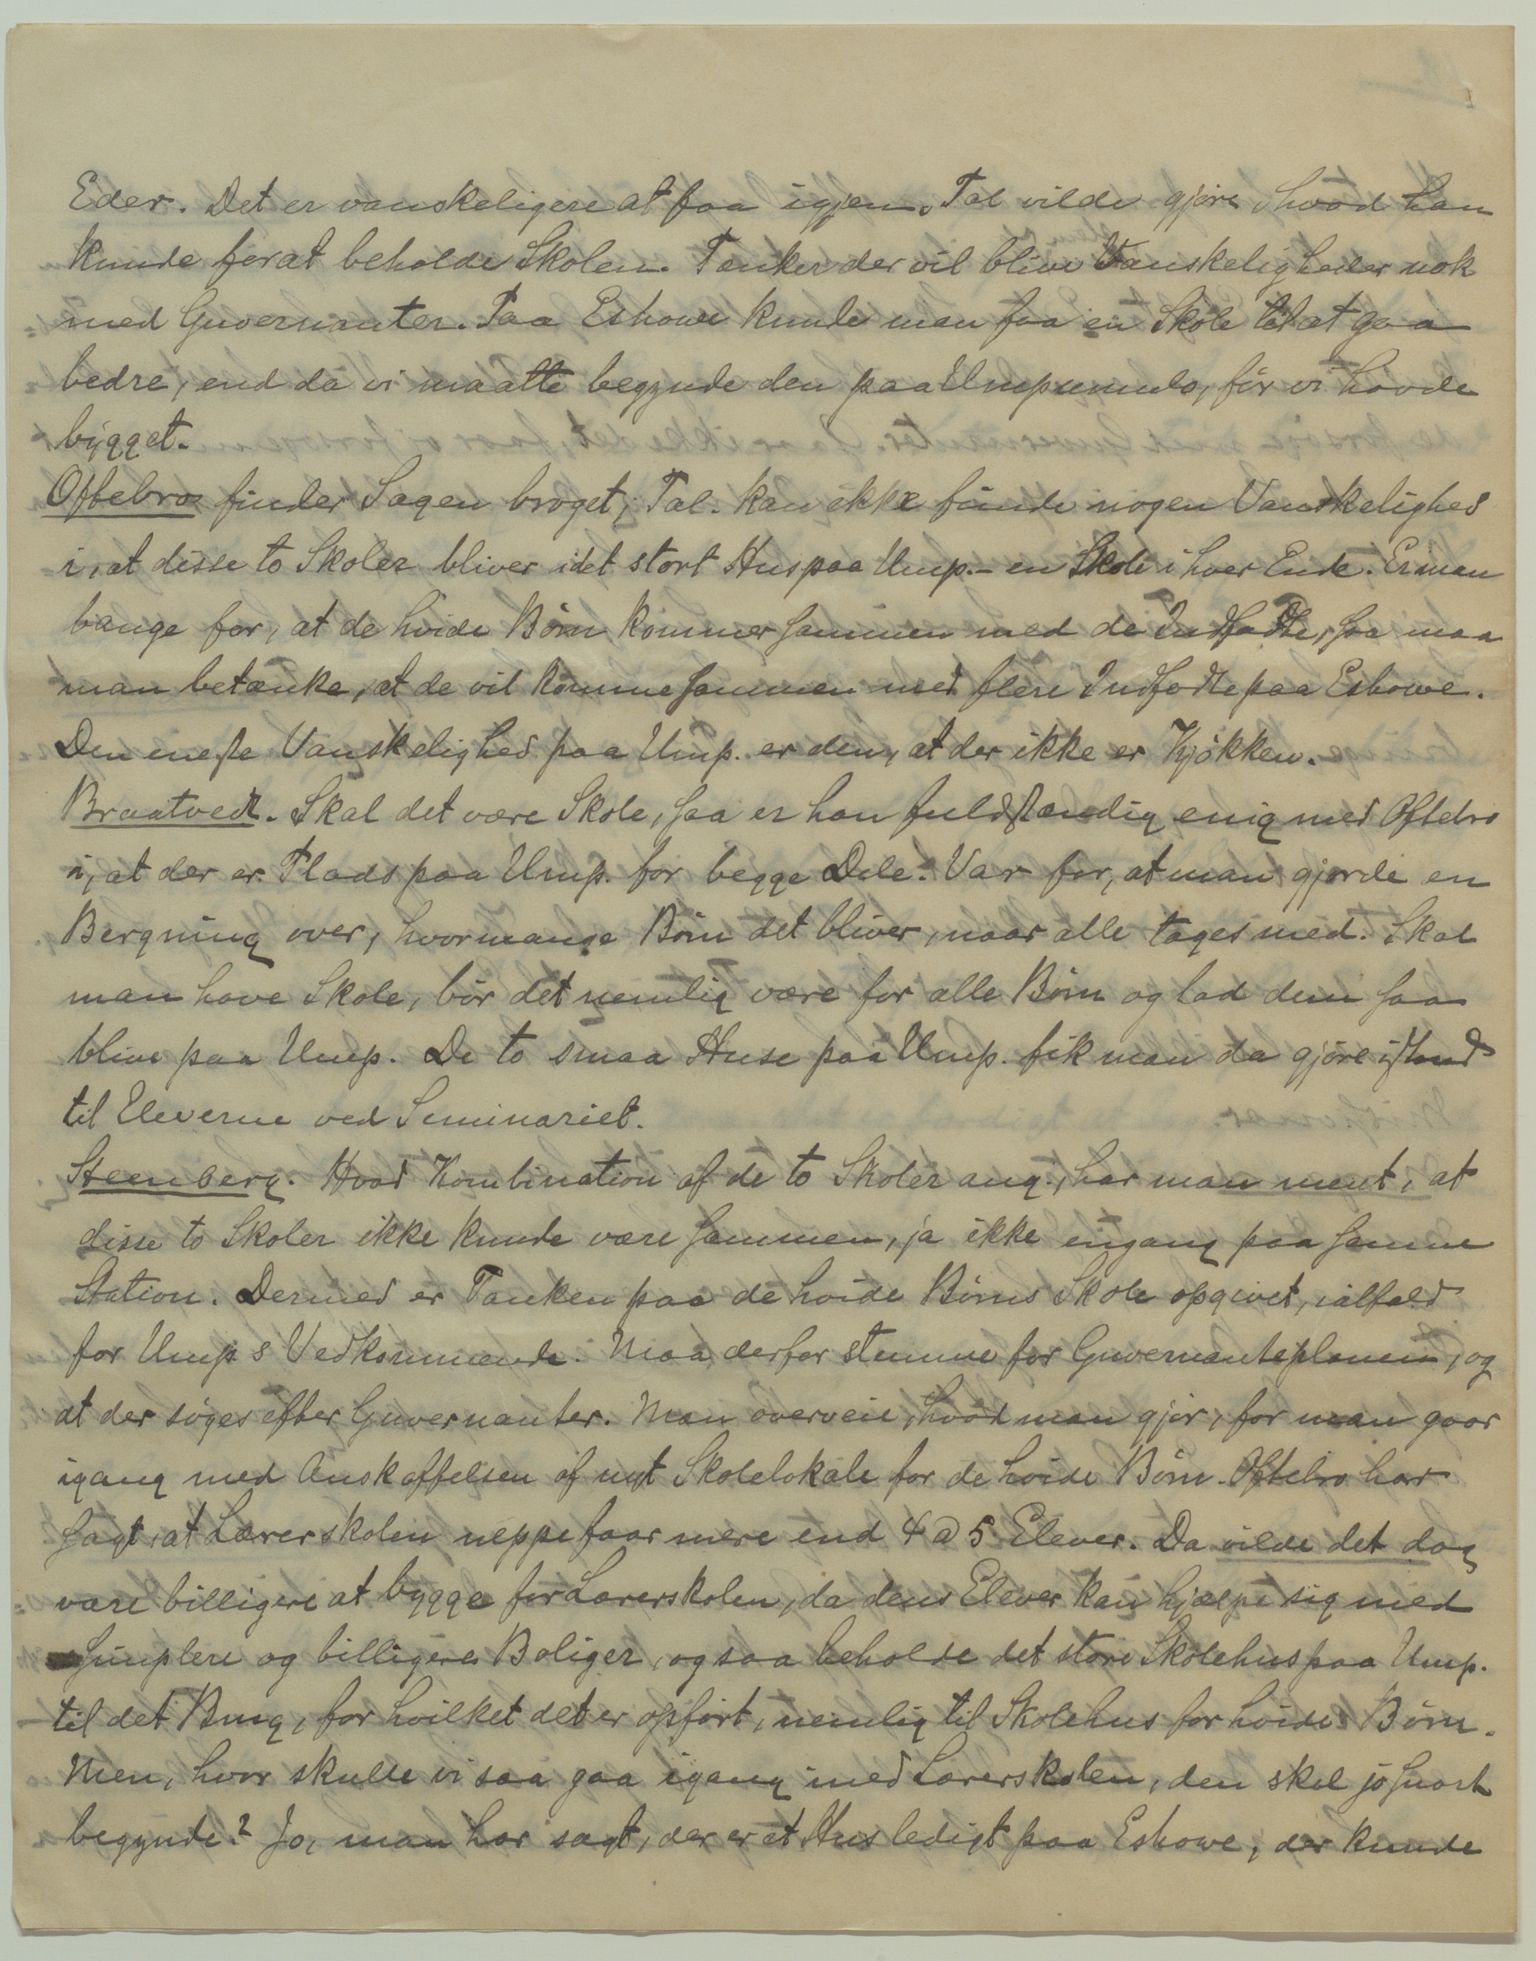 Eder. Det er vanskeligere at faa igjen. Tal vilde gjøre, hvad han
kunde forat beholde Skolen. Tænker der vil blive Vanskeligheder nok
med Guvernanter. Paa Eshowe kunde man faa en Skole til at gaa
bedre, end da vi maatte begynde den paa Umpumulo, før vi havde
bygget.
Oftebro finder Sagen broget; Tal. kan ikke finde nogen Vanskelighed
i, at disse to Skoler bliver i det stort Hus paa Ump. - en Skole i hver Ende. Er man
bange for, at de hvide Børn kommer sammen med de Indfødte, saa maa
man betænke, at de vil komme sammen med flere Indfødte paa Eshowe.
Den eneste Vanskelighed paa Ump. er den, at der ikke er Kjøkken.
Braatvedt. Skal det være Skole, saa er han fuldstændig enig med Oftebro
i, at der er Plads paa Ump. for begge Dele. Var for, at man gjorde en
Bergning over, hvormange Børn det bliver, naar alle tages med. Skal
man have Skole, bør det nemlig være for alle Børn og lad dem saa
blive paa Ump. De to smaa Huse paa Ump. fik man da gjøre istand
til Eleverne ved Seminariet.
Steenberg. Hvad Kombination af de to Skoler ang., har man ment, at
disse to Skoler ikke kunde være sammen, ja ikke engang paa samme
Station. Dermed er Tanken paa de hvide Børns Skole opgivet, ialfald
for Ump s Vedkommende. Maa derfor stemme for Guvernanteplanen, og
at der søges efter Guvernanter. Man overveie, hvad man gjør, før man gaar
igang med Anskaffelsen af nyt Skolelokale for de hvide Børn. Oftebro har
sagt, at Lærerskolen neppe faar mere end 4 a 5 Elever. Da vilde det dog
være billigere at bygge for Lærerskolen, da dens Elever kan hjælpe sig med
simplere og billigere Boliger, og saa beholde det store Skolehus paa Ump.
til det Brug, for hvilket det er opført, nemlig til Skolehus for hvide Børn.
Men, hvor skulle vi saa gaa igang med Lærerskolen, den skal jo snart
begynde? Jo, man har sagt, der er et Hus ledigt paa Eshowe, der kunde